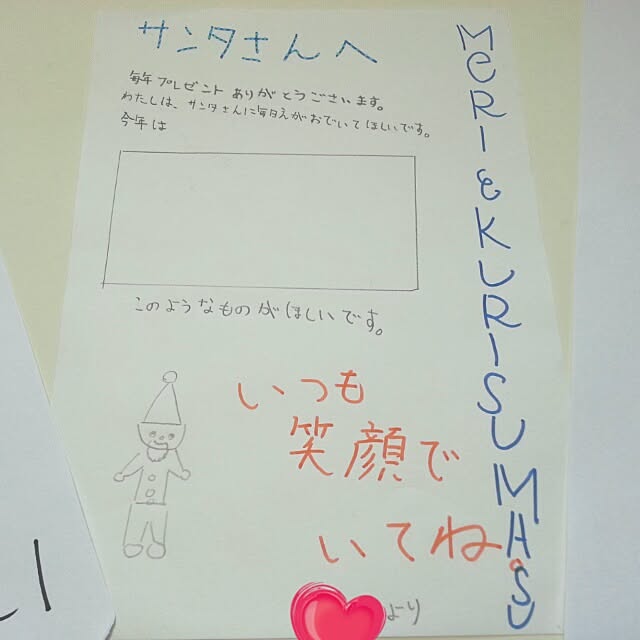 サンタさんへ
毎年プレゼントありがとうございます。
わたしは、サンタさんに毎日えがおでいてほしいです。
今年は
このようなものがほしいです。
いつも
笑顔で
いてね。
より
MERIEKURISUMASU